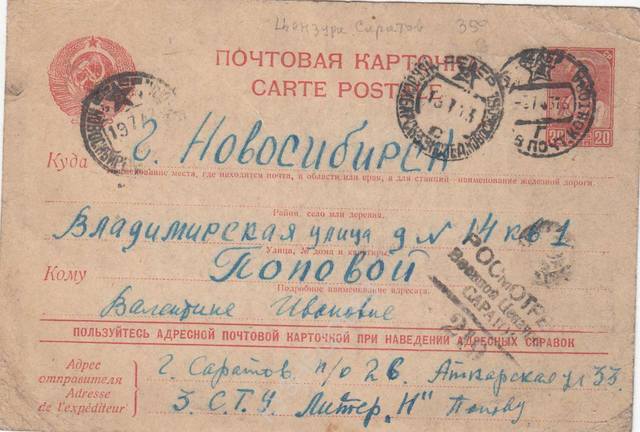 Цензура Саратов 350
ПОЧТОВАЯ КАРТОЧКА
CARTE POSTALE
20 20
Куда г. Новосибирск
наименование места, где находится почта, и области или края, а для станций—наименование железной дороги.
Район, село или деревня.
Владимирская улица д N 14 кв 1
Улица, № дома и квартиры.
Кому Поповой
Подробное наименование адресата.
Валентине Ивановне
ПРОСМОТРЕ
Военной Цензу
САРАТОВ
ПОЛЬЗУЙТЕСЬ АДРЕСНОЙ ПОЧТОВОЙ КАРТОЧКОЙ ПРИ НАВЕДЕНИИ АДРЕСНЫХ СПРАВОК
Адрес отправителя
Adresse de l'expéditeur
г. Саратов. п/о 26. Аткарская ул 33.
3. С.Т.У. Литер „Н" Попову